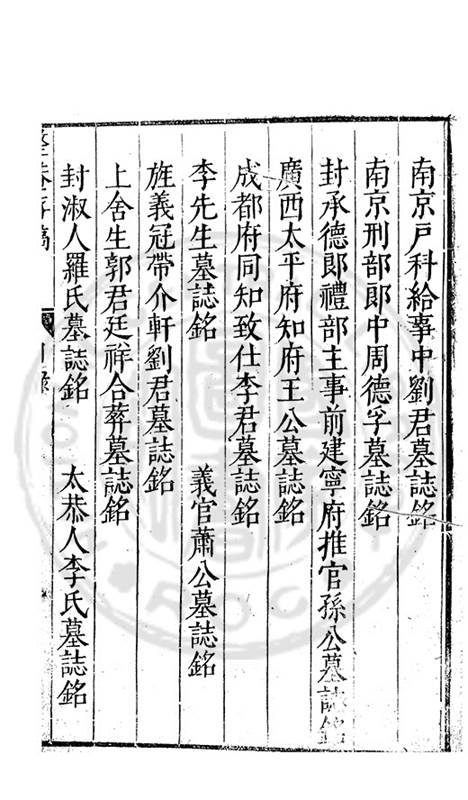 南京戶科給事中劉君墓誌銘
南京刑部郎中周德孚墓誌銘
封承德郎禮部主事前建寧府推官孫公墓誌銘
廣西太平府知府王公墓誌銘
成都府同知致仕李君墓誌銘
李先生墓誌銘　義官蕭公墓誌銘
旌義冠帶介軒劉君墓誌銘
上舍生郭君廷祥合葬墓誌銘
封淑人羅氏墓誌銘　太恭人李氏墓誌銘
存稿
目錄